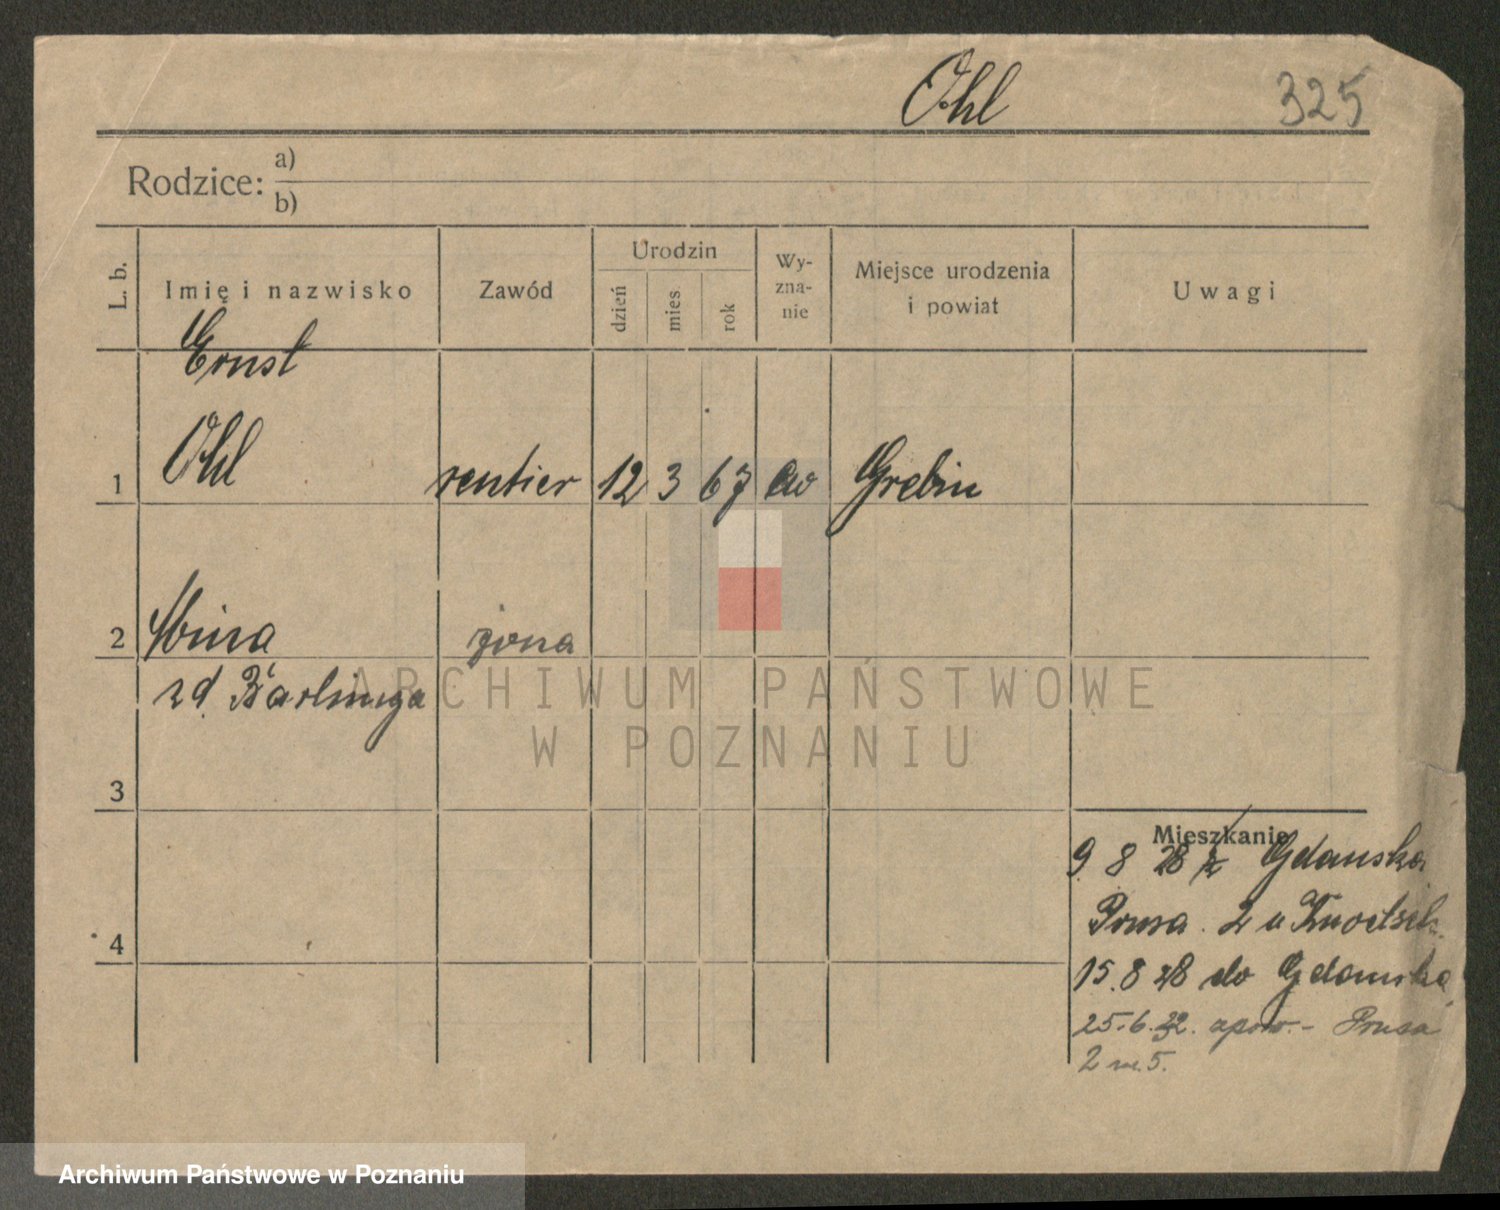 Ohl 325
Rodzice: a)
b)
L. b. Imię i nazwisko Zawód Urodzin dzień mies rok Wy-zna-nie Miejsce urodzenia i powiat Uwagi
Ernst
1 Ohl rentier 12 3 67 ew Grebin
2 żona
zd.
3
Mieszkanie
9 8 28 z Gdańska
Prusa 2 u
4
15.8 28 do Gdańska
25.6.32. - Prusa
2 m. 5.
ARCHIWUM PAŃSTWOWE
W POZNANIU
Archiwum Państwowe w Poznaniu